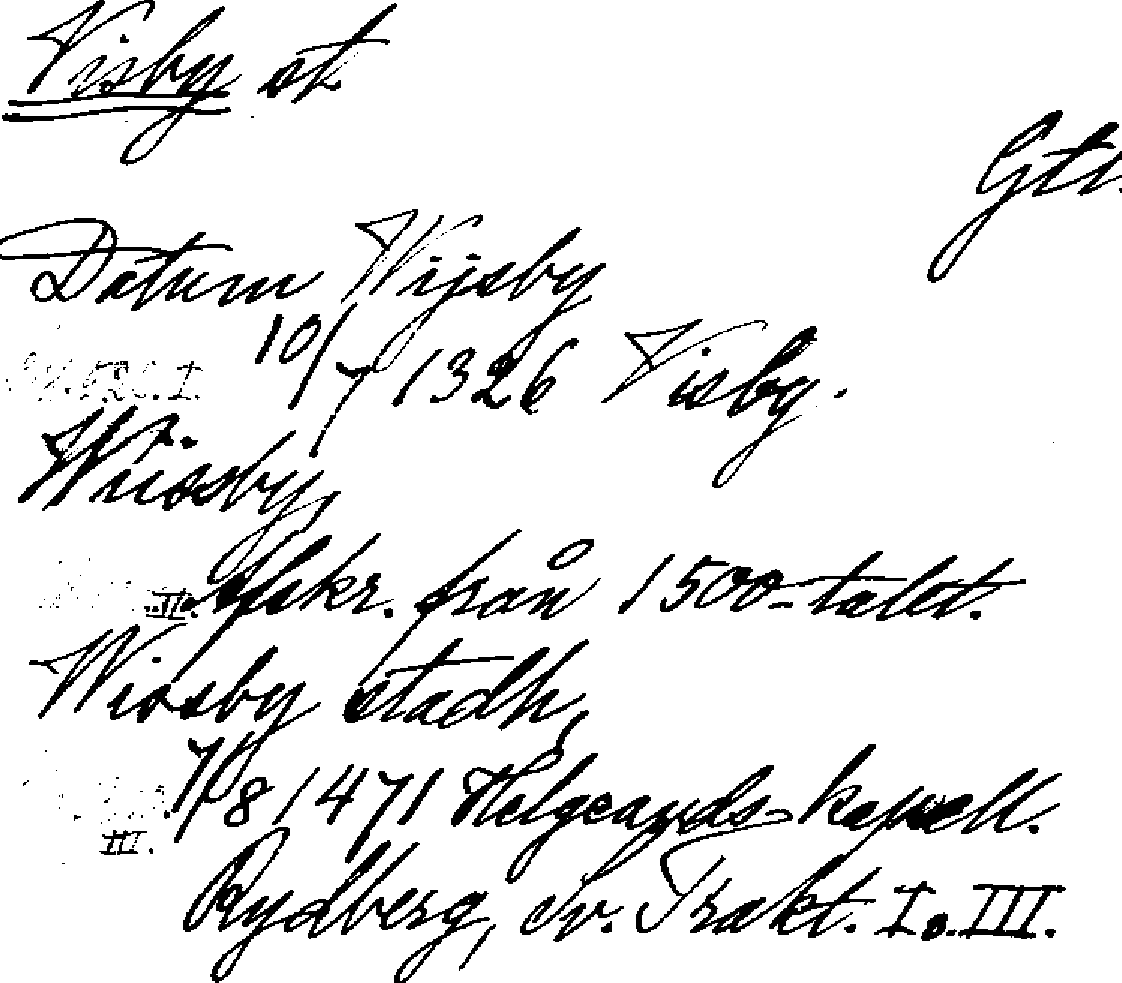 Visby st
Gtl.
Datum Wijsby
10/7 1326 Visby.
I.
Wiisby,
II. Afskr. från 1500-talet.
Wisby stadh,
7/8 1471 Helgeands-kapell.
III.
Rydberg, Sv. Trakt. I o. III.